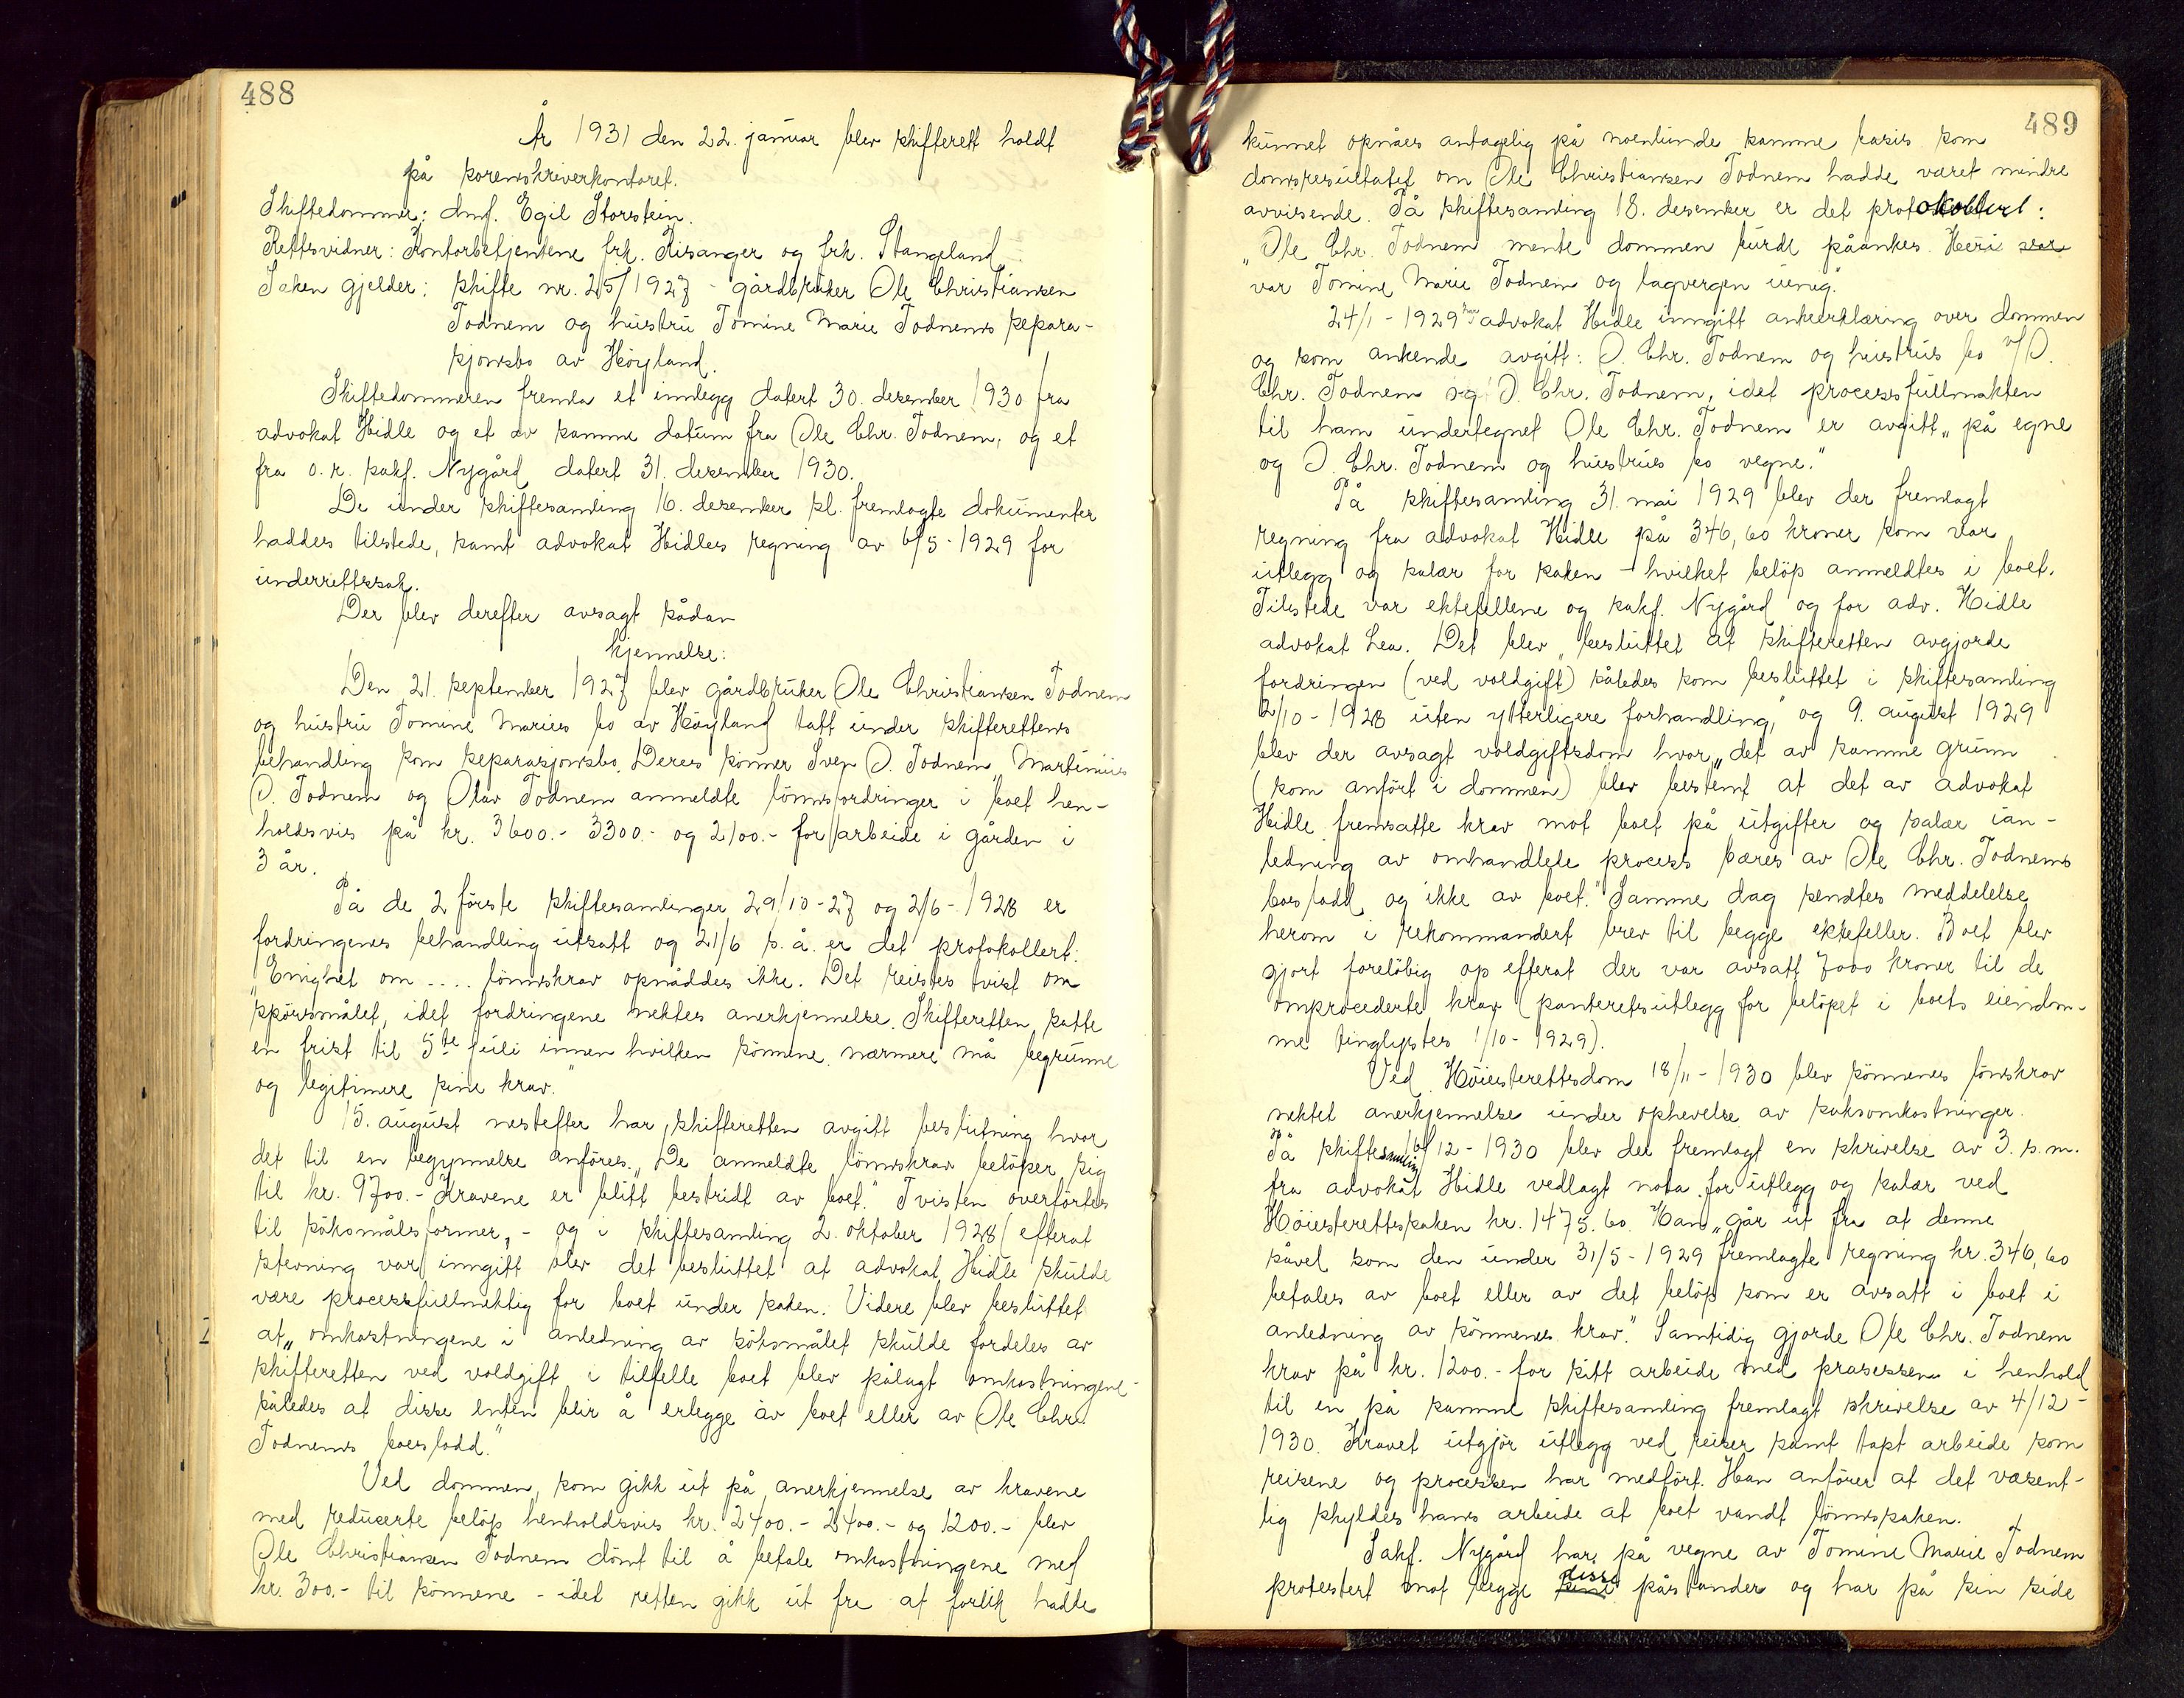 488
År 1931 den 22. januar blev skifterett holdt
på sorenskriverkontoret.
Skiftedommer: dmf. Egil Storstein.
Rettsvidner: Kontorbetjentene frk. Risanger og frk. Stangeland
Saken gjelder: skifte nr. 25/1927 - gårdbruker Ole Christiansen
Todnem og hustru Tomine Marie Todnems separa-
sjonsbo av Höyland.
Skiftedommeren fremla et innlegg datert 30. desember 1930 fra
advokat Hidle og et av samme datum fra Ole Chr. Todnem, og et
fra o.r. sakf. Nygård datert 31. desember 1930.
De under skiftesamling 16. desember sl. fremlagte dokumenter
haddes tilstede, samt advokat Hidles regning av 6/5-1929 for
underrettssak.
Der blev derefter avsagt sådan
kjennelse:
Den 21. september 1927 blev gårdbruker Ole Christiansen Todnem
og hustru Tomine Maries bo av Höyland tatt under skifterettens
behandling som separasjonsbo. Deres sönner Sven O. Todnem, Martinius
O. Todnem og Olav Todnem anmeldte lönnsfordringer i boet hen-
holdsvis på kr. 3600.- 3300.- og 2100.- for arbeide i gården i
3 år.
På de 2 förste skiftesamlinger 29/10-27 og 2/6-1928 er
fordringenes behandling utsatt og 21/6 s.å. er det protokollert:
"Enighet om .... lönnskrav opnåddes ikke. Det reistes tvist om
spörsmålet, idet fordringene nektes anerkjennelse. Skifteretten satte
en frist til 5te juli innen hvilken sönnene nærmere må begrunne
og legitimere sine krav."
15. august nestefter har skifteretten avgitt beslutning hvor
det til en begynnelse anföres: "De anmeldte lönnskrav belöper sig
til kr. 9700.- Kravene er blitt bestridt av boet." Tvisten overförtes
til söksmålsformer, - og i skiftesamling 2. oktober 1928 (efterat
stevning var inngitt blev det besluttet at advokat Hidle skulde
være processfullmektig for boet under saken. Videre blev besluttet
at "omkostningene i anledning av söksmålet skulde fordeles av
skifteretten ved voldgift i tilfelle boet blev pålagt omkostningene -
således at disse enten blir å erlegge av boet eller av Ole Chr.
Todnems boeslodd."
Ved dommen, som gikk ut på anerkjennelse av kravene
med reduserte belöp henholdsvis kr. 2400.- 2400.- og 1200.- blev
Ole Christiansen Todnem dömt til å betale omkostningene med
kr. 300.- til sönnene - idet retten gikk ut fra at forlik hadde
489
kunnet opnåes antagelig på noenlunde samme basis som
domsresultatet om Ole Christiansen Todnem hadde været mindre
avvisende. På skiftesamling 18. desember er det protokollert:
"Ole Chr. Todnem mente dommen burde påankes. Heri
var Tomine Marie Todnem og lagvergen uenig."
24/1-1929 har advokat Hidle inngitt ankeerklæring over dommen
og som ankende avgitt: O. Chr. Todnem og hustrus bo v/O.
Chr. Todnem og O. Chr. Todnem, idet processfullmakten
til ham undertegnet Ole Chr. Todnem er avgitt "på egne
og O. Chr. Todnem og hustrus bo vegne."
På skiftesamling 31. mai 1929 blev der fremlagt
regning fra advokat Hidle på 346,60 kroner som var
utlegg og salær for saken - hvilket belöp anmeldtes i boet.
Tilstede var ektefellene og sakf. Nygård og for adv. Hidle
advokat Lea. Det blev "besluttet at skifteretten avgjorde
fordringen (ved voldgift) således som besluttet i skiftesamling
2/10-1928 uten ytterligere forhandling," og 9. august 1929
blev der avsagt voldgiftsdom hvor "det av samme grunn
(som anfört i dommen) blev bestemt at det av advokat
Hidle fremsatte krav mot boet på utgifter og salær ian-
ledning av omhandlede process bæres av Ole Chr. Todnems
boeslodd og ikke av boet." Samme dag sendtes meddelelse
herom i rekommandert brev til begge ektefeller. Boet blev
gjort forelöbig op efterat der var avsatt 7000 kroner til de
omprocederte krav (panteretsutlegg for belöpet i boets eiendom-
me tinglystes 1/10-1929).
Ved Höiesterettsdom 18/11-1930 blev sönnenes lönskrav
nektet anerkjennelse under ophevelse av saksomkostninger.
På skiftesamling 16/12-1930 blev der fremlagt en skrivelse av 3. s.m.
fra advokat Hidle vedlagt nota for utlegg og salær ved
Höiesterettssaken kr. 1475.60. Han "går ut fra at denne
såvel som den under 31/5-1929 fremlagte regning kr. 346,60
betales av boet eller av det belöp som er avsatt i boet i
anledning av sönnenes krav." Samtidig gjorde Ole Chr. Todnem
krav på kr. 1200.- for sitt arbeide med prosessen i henhold
til en på samme skiftesamling fremlagt skrivelse av 4/12-
1930. Kravet utgjör utlegg ved reiser samt tapt arbeide som
reisene og processen har medfört. Han anförer at det væsent-
lig skyldes hans arbeide at boet vandt lönnssaken.
Sakf. Nygård har på vegne av Tomine Marie Todnem
protestert mot begge disse påstander og har på sin side